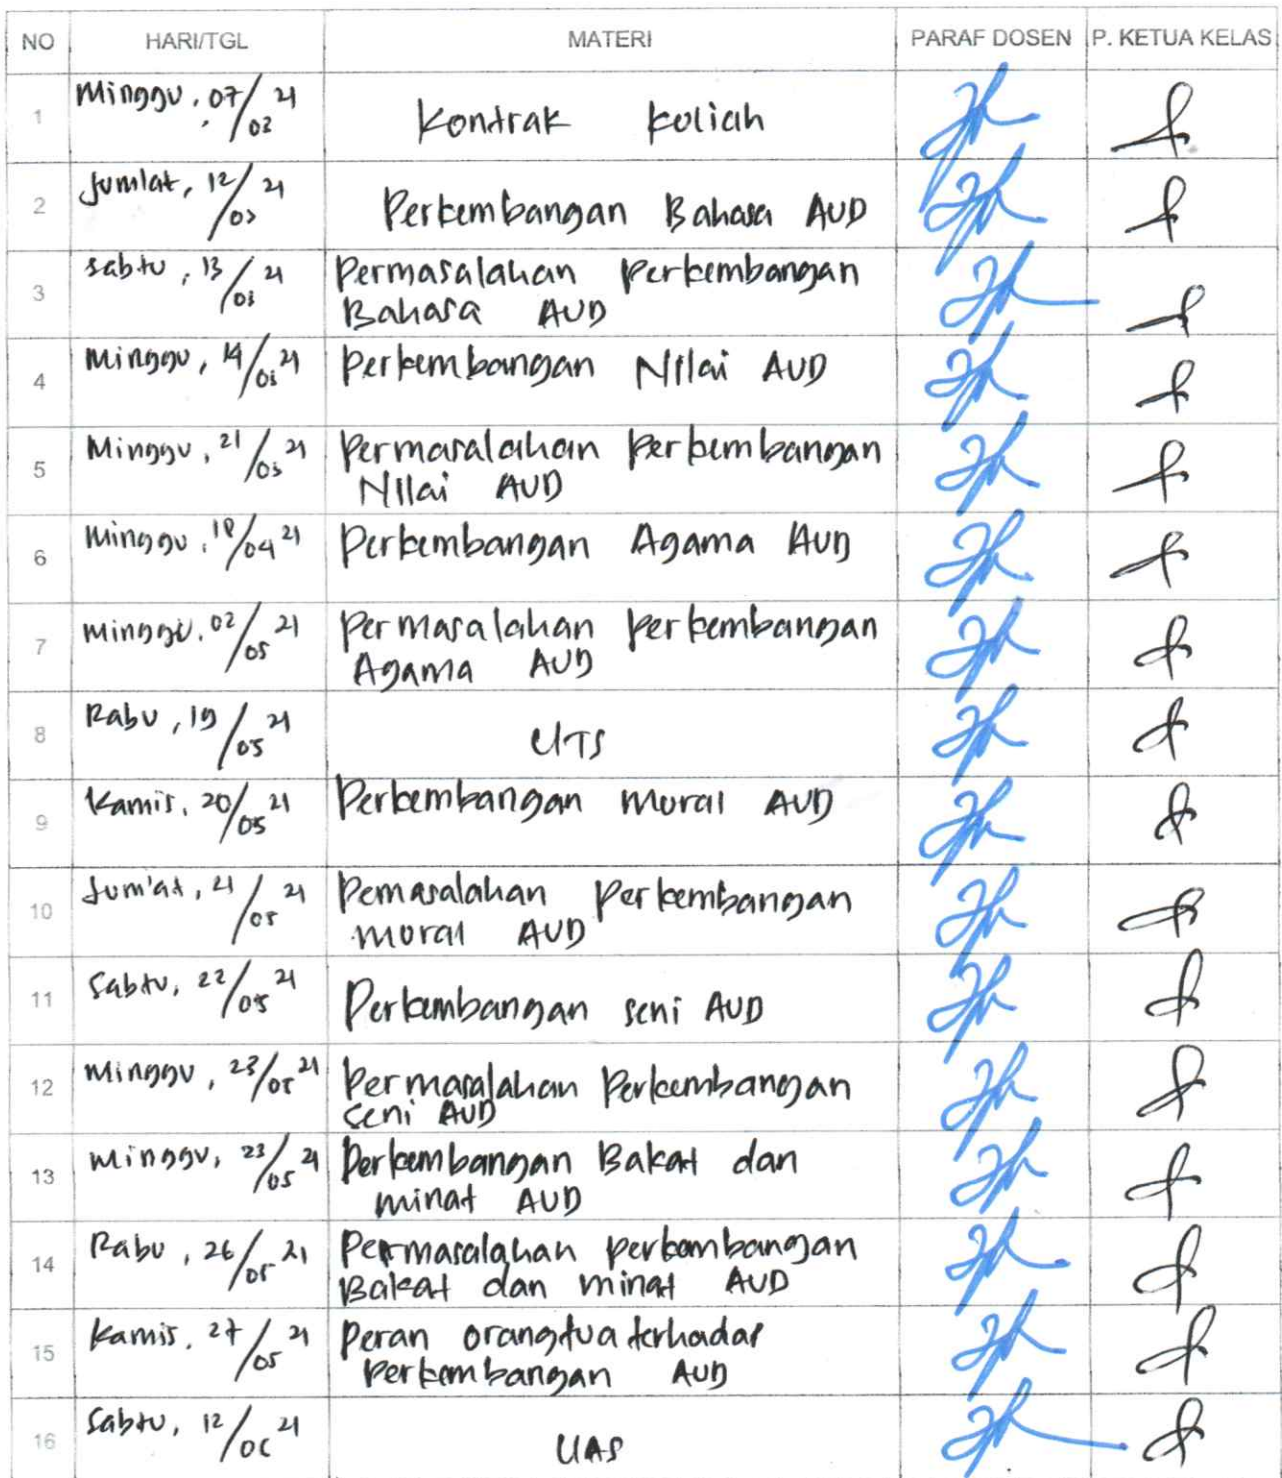 NO HARI/TGL MATERI PARAF DOSEN P. KETUA KELAS
1 Minggu, 07/03 21 Kontrak Kuliah
2 Jumlat, 12/03 21 Perkembangan Bahasa AUD
3 Sabtu, 13/03 21 Permasalahan Perkembangan
Bahasa AUD
4 Minggu, 14/03 21 Perkembangan Nilai AUD
5 Minggu, 21/03 21 Permasalahan Perkembangan
Nilai AUD
6 Minggu, 18/04 21 Perkembangan Agama AUD
7 Minggu, 02/05 21 Permasalahan Perkembangan
Agama AUD
8 Rabu, 19/05 21 UTS
9 Kamis, 20/05 21 Perkembangan Moral AUD
10 Jum'at, 21/05 21 Pemasalahan Perkembangan
Moral AUD
11 Sabtu, 22/05 21 Perkembangan seni AUD
12 Minggu, 23/05 21 Permasalahan Perkembangan
seni AUD
13 Minggu, 23/05 21 Perkembangan Bakat dan
minat AUD
14 Rabu, 26/05 21 Permasalahan perkembangan
Bakat dan minat AUD
15 Kamis, 27/05 21 Peran orangtua terhadap
Perkembangan AUD
16 Sabtu, 12/06 21 UAS